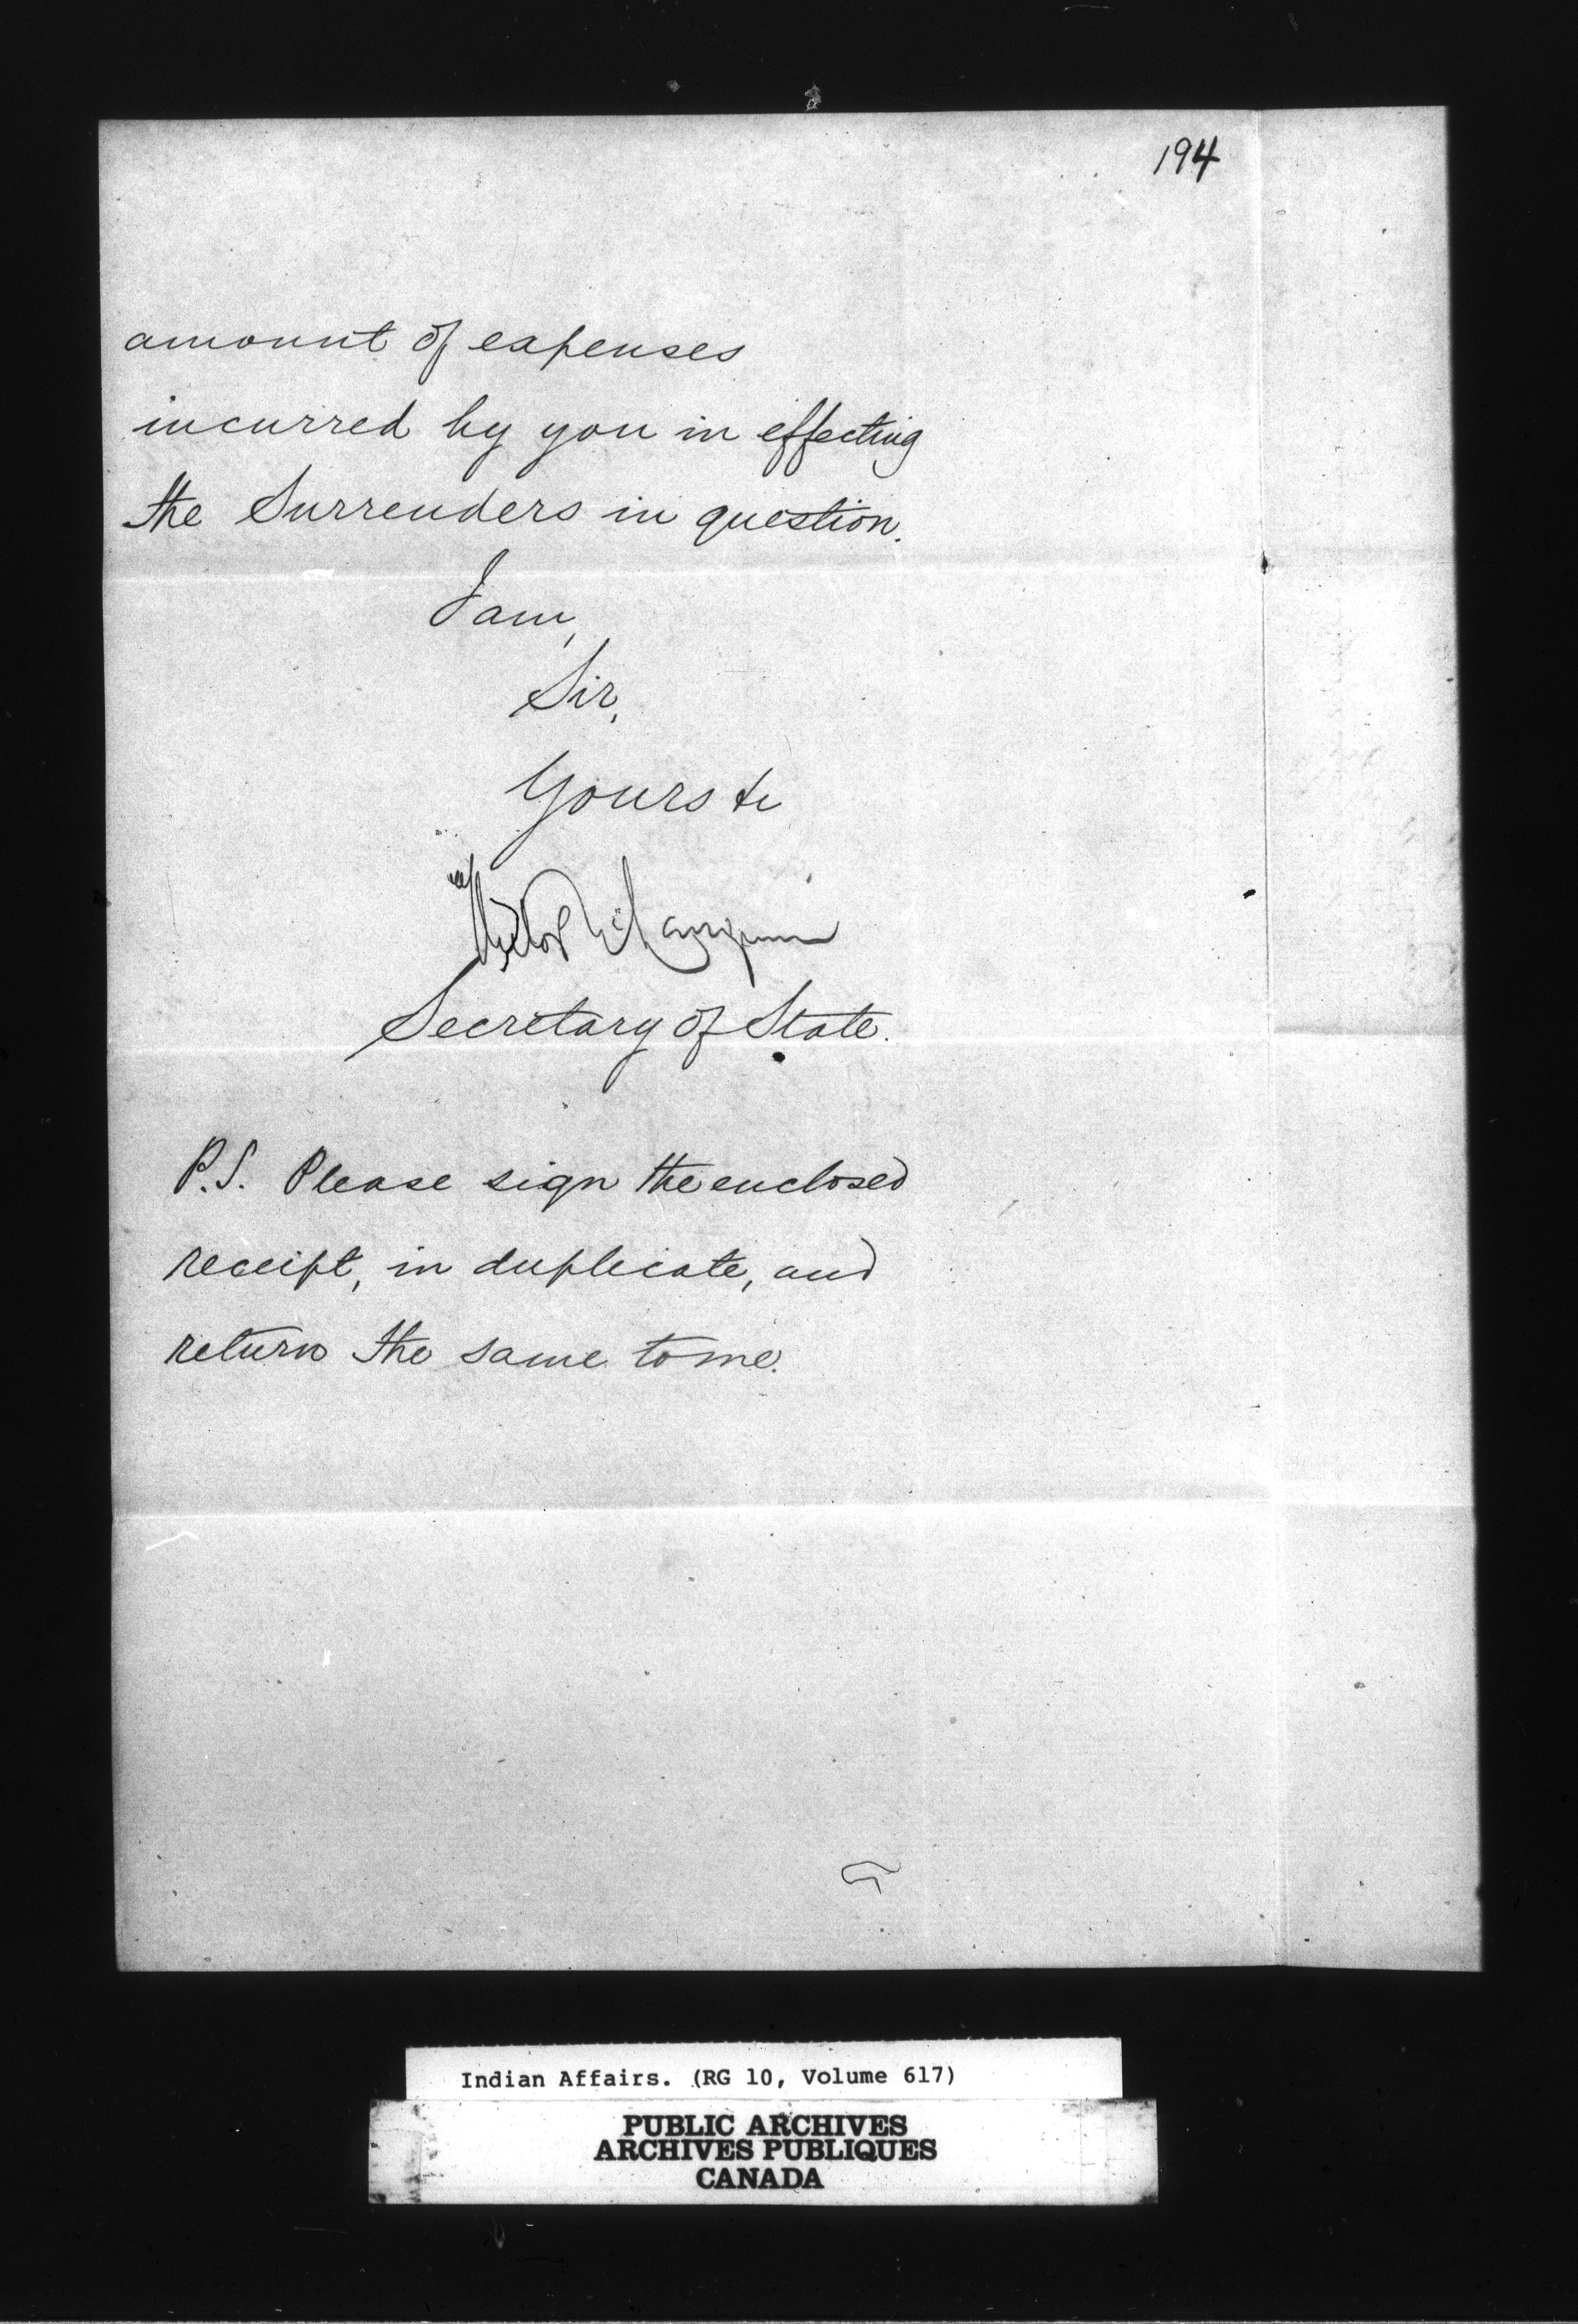 194
amount of expenses
incurred by you in effecting
the Surrenders in question.
I am,
Sir,
Yours &c
Secretary of State.
P.S. Please sign the enclosed
receipt, in duplicate, and
return the same to me.
Indian Affairs. (RG 10, Volume 617)
PUBLIC ARCHIVES
ARCHIVES PUBLIQUES
CANADA